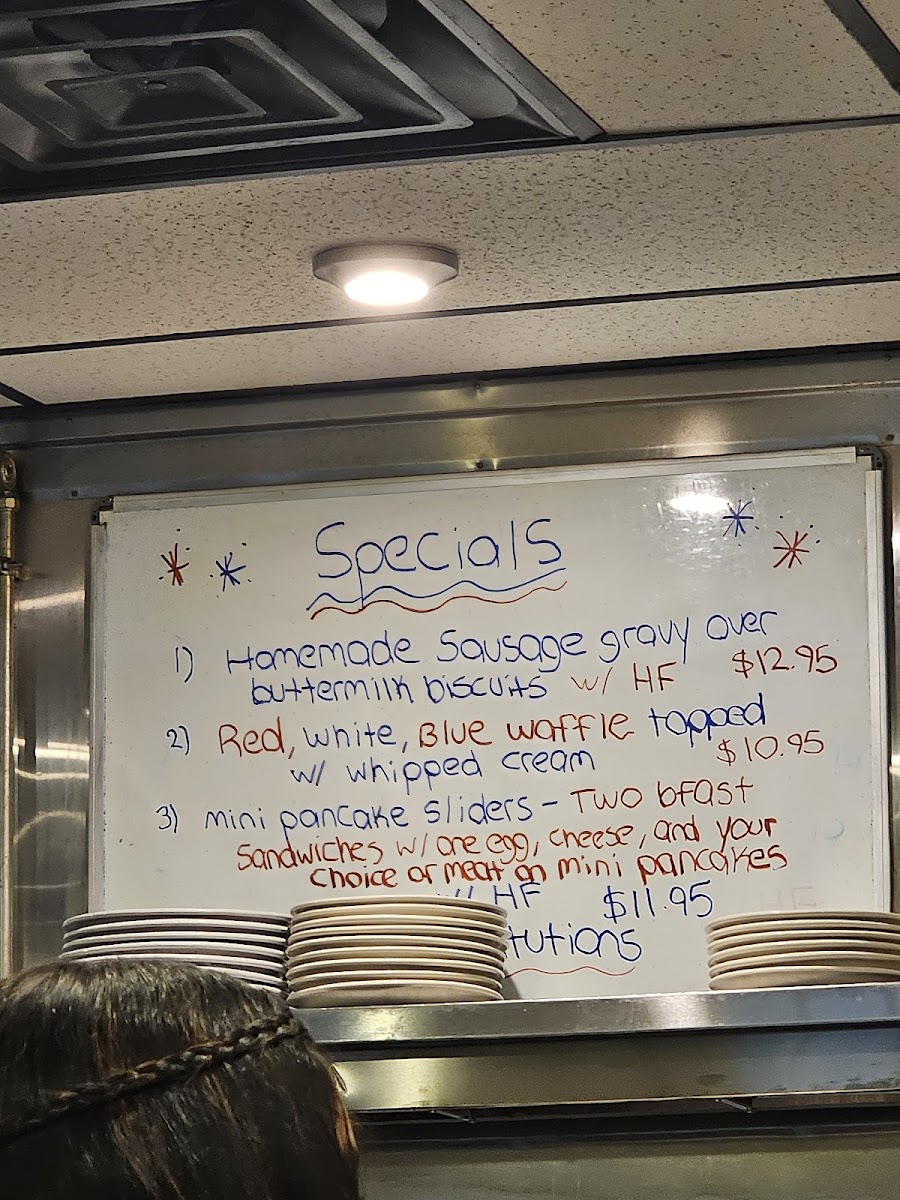 Specials
1) Homemade Sausage gravy over
buttermilk biscuits w/ HF $12.95
2) Red, white, Blue waffle topped
w/ whipped cream $10.95
3) mini pancake sliders - Two bfast
Sandwiches w/ one egg, cheese, and your
choice of meat on mini pancakes
w/ HF $11.95
tutions